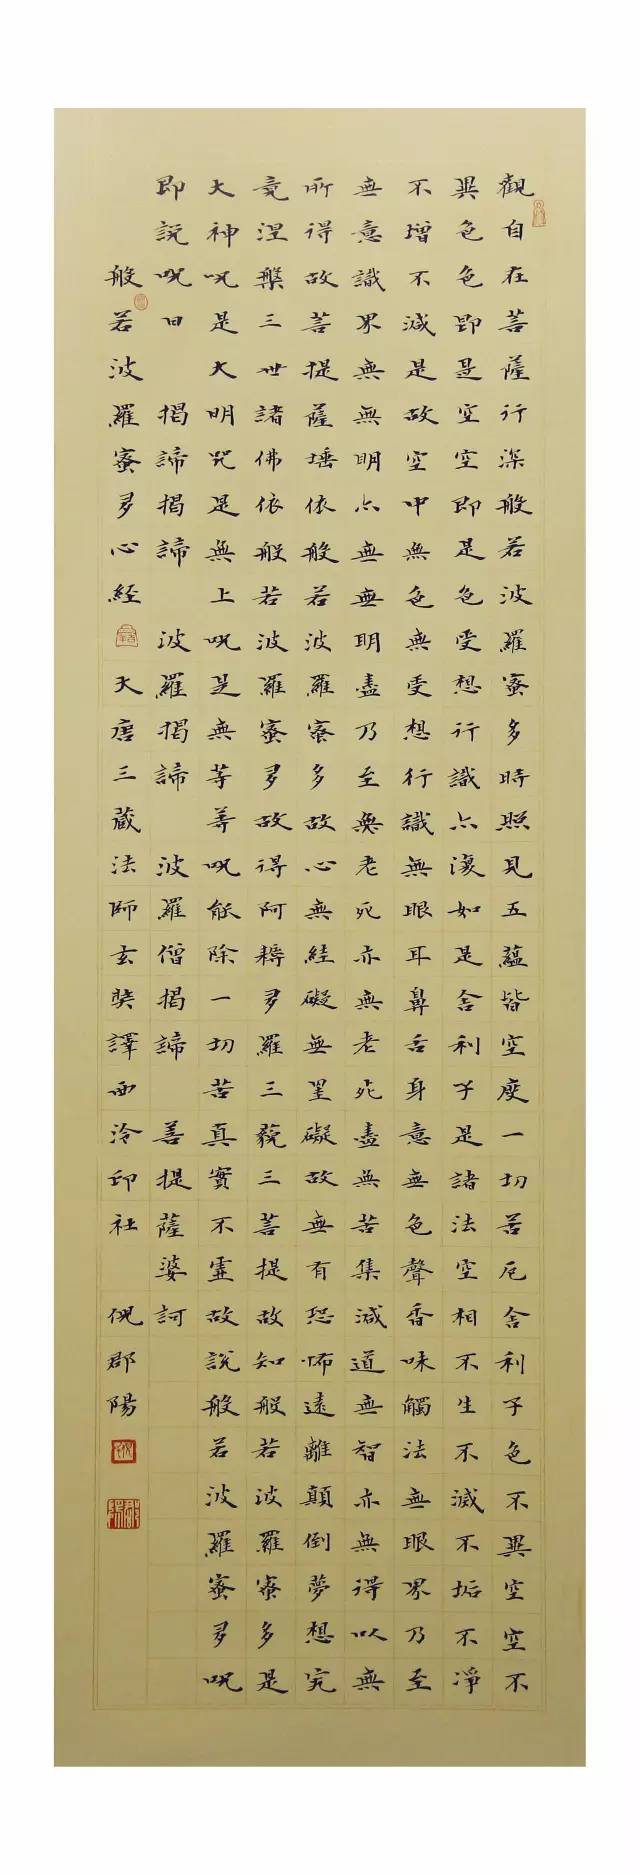 觀自在菩薩行深般若波羅蜜多時照見五蘊皆空度一切苦厄舍利子色不異空空不
異色色即是空空即是色受想行識亦復如是舍利子是諸法空相不生不滅不垢不淨
不增不減是故空中無色無受想行識無眼耳鼻舌身意無色聲香味觸法無眼界乃至
無意識界無無明亦無無明盡乃至無老死亦無老死盡無苦集滅道無智亦無得以無
所得故菩提薩埵依般若波羅蜜多故心無絓礙無罣礙故無有恐怖遠離顛倒夢想究
竟涅槃三世諸佛依般若波羅蜜多故得阿耨多羅三藐三菩提故知般若波羅蜜多是
大神呪是大明咒是無上呪是無等等呪能除一切苦真實不虛故說般若波羅蜜多呪
即說呪曰 揭諦揭諦 波羅揭諦 波羅僧揭諦 菩提薩婆訶
般若波羅蜜多心經 大唐三藏法師玄奘譯西泠印社 倪郡陽